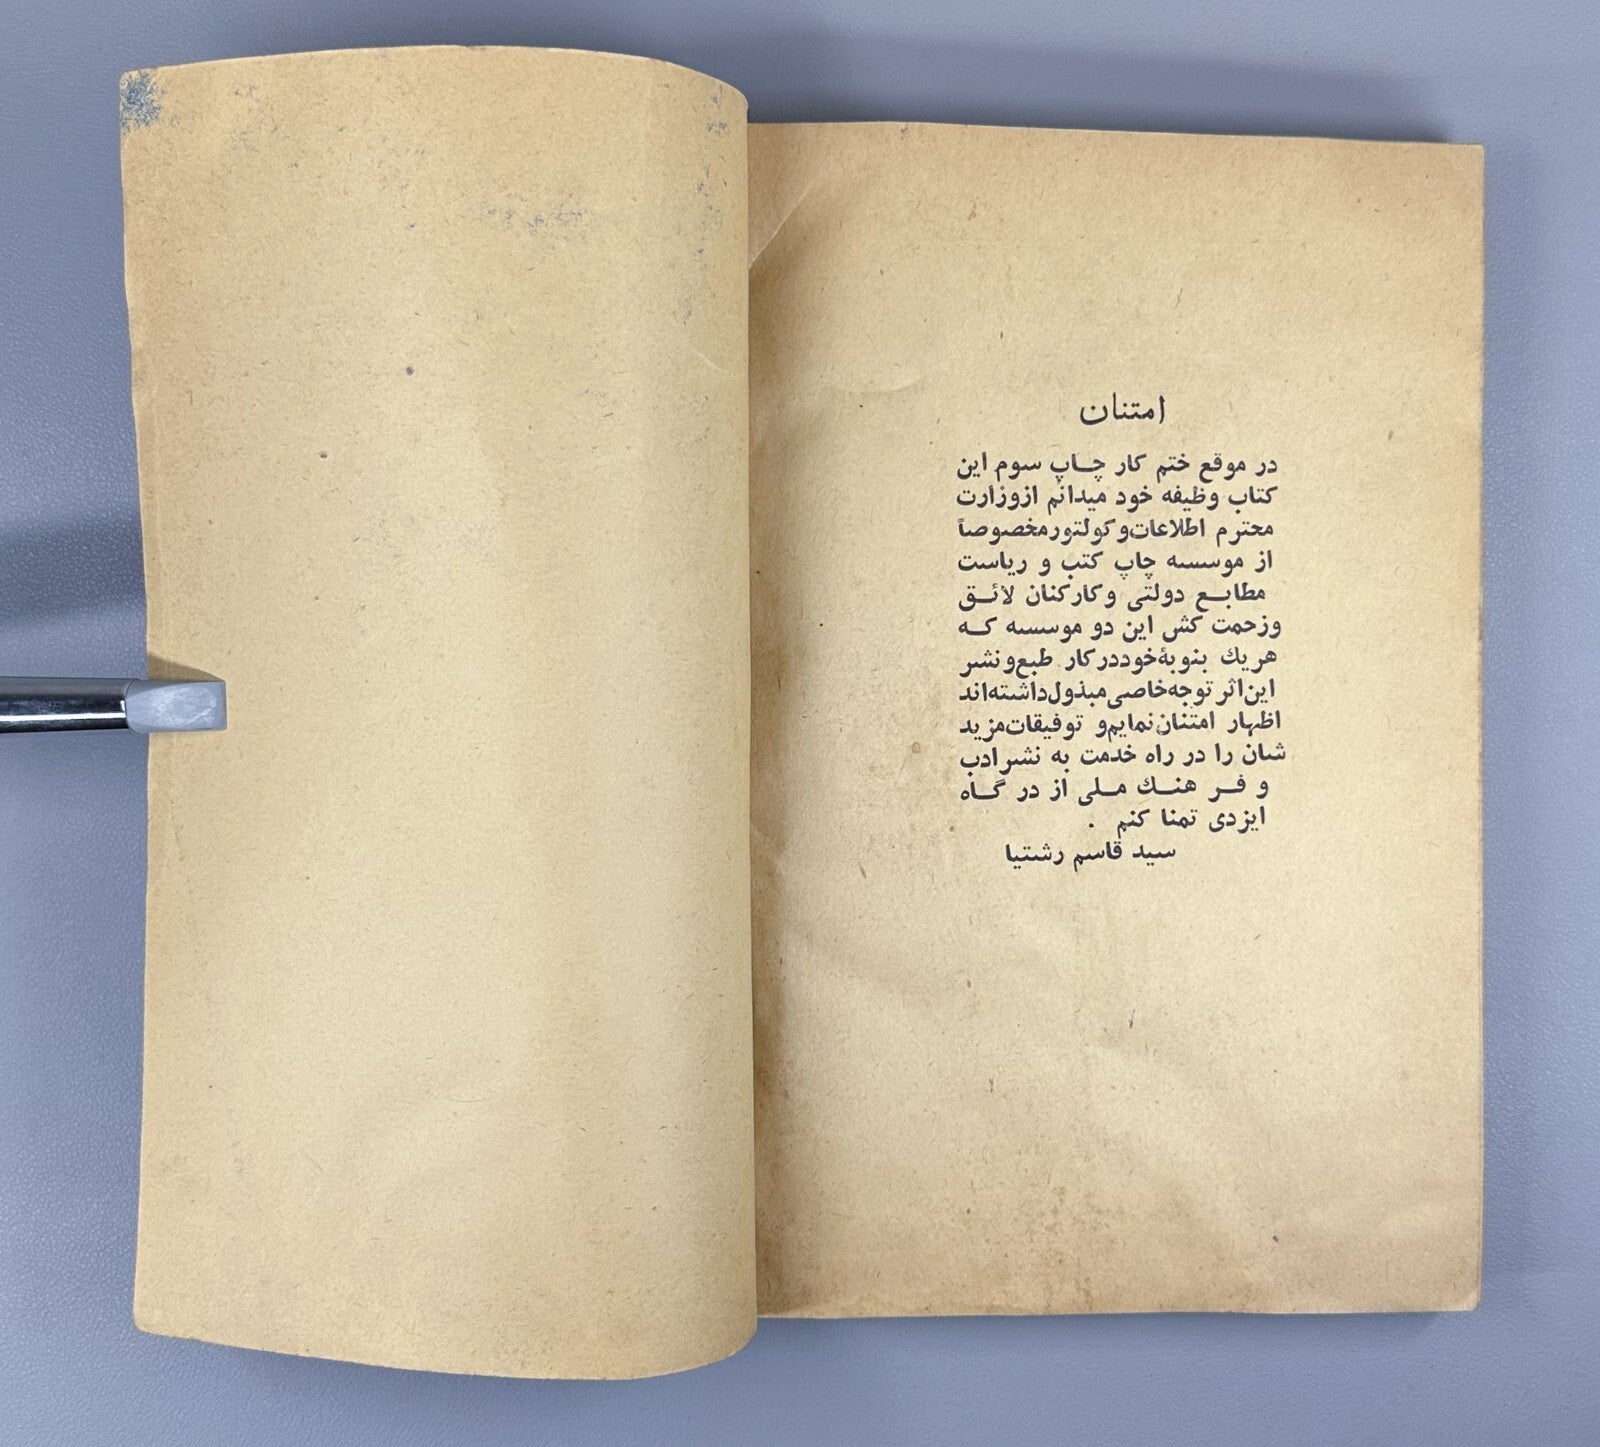 امتنان
در موقع ختم کار چاپ سوم این
کتاب وظیفه خود میدانم ازوزارت
محترم اطلاعات و کولتور مخصوصاً
از موسسه چاپ کتب و ریاست
مطابع دولتی و کارکنان لائق
وزحمت کش این دو موسسه که
هریك بنوبهٔ خود در کار طبع و نشر
این اثر توجه خاصی مبذول داشته اند
اظهار امتنان نمایم و توفیقات مزید
شان را در راه خدمت به نشر ادب
و فرهنك ملی از درگاه
ایزدی تمنا کنم .
سید قاسم رشتیا